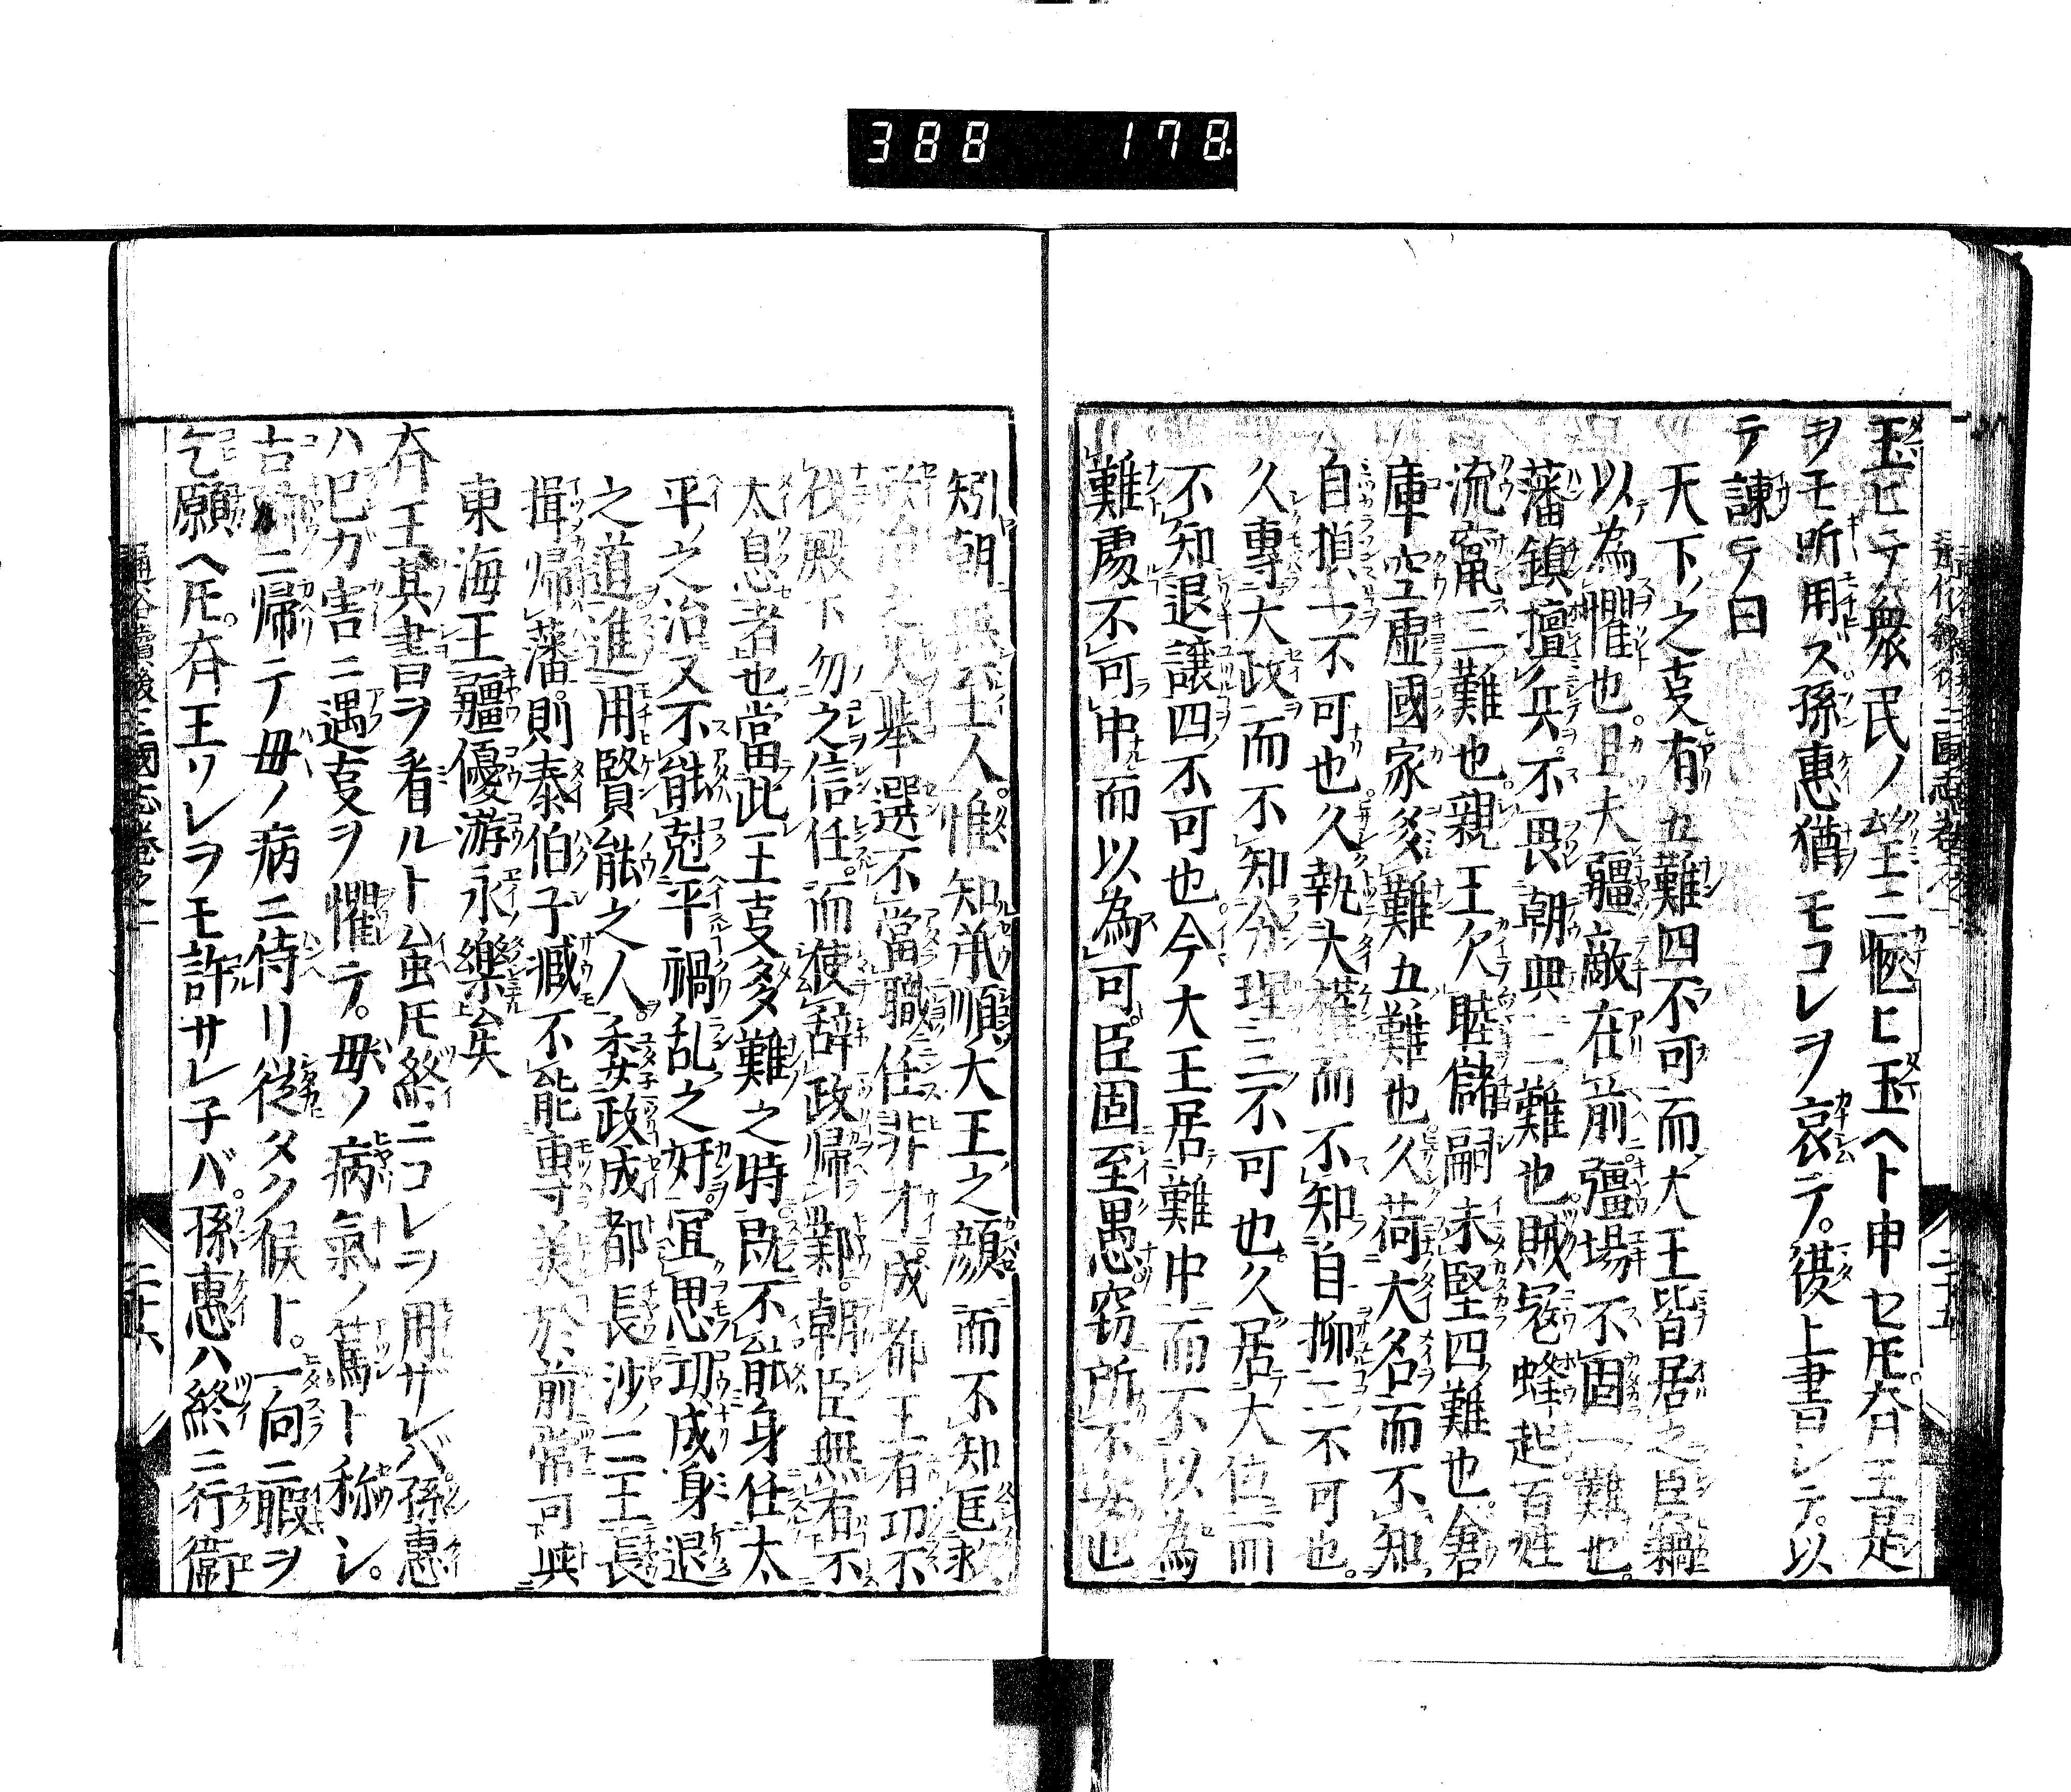 388 178
玉ヒテ衆民ノ望ニ愜ヒ玉ヘト申セ𪜈。斉王是
ヲモ听用ス孫惠猶モコレヲ哀テ。復上書シテ。以
テ諌テ曰
天下ノ之㕝有五難四不可而大王皆居之臣竊
以為懼也。且夫疆敵在前疆場不固一難也。
藩鎮擅兵。不畏朝典二難也。賊冦蜂起百姓
流竄三難也。親王欠睦儲嗣未堅四難也。倉
庫空虚國家多難五難也久荷大名而不知
自損一不可也久執大權而不知自抑二不可也。
久專大政而不知分理三不可也。久居大位而
不知退讓四不可也。今大王居難中而不以為
難處不可中而以為可。臣固至愚。窃所不安也
矧朝無正人。惟知承順大王之顔而不知匡救。
舉選不當職任非才。成都王有功不
殿下勿之信任。而使辞政帰鄴。朝臣無有不
太息者也當此王㕝多難之時既不能身任太
平之治又不能尅平禍乱之奸。宜思功成身退
之道進用賢能之人。委政成都長沙二王長
揖帰藩。則泰伯子臧不能專美於前常可與
東海王疆優游永樂矣
斉王其書ヲ看ルト虽𪜈終ニコレヲ用ザレバ孫惠
ハ巳ガ害ニ遇㕝ヲ懼テ。母ノ病氣ノ篤ト称シ。
古郷ニ帰テ母ノ病ニ侍リ從タク候ト。一向ニ暇ヲ
乞願ヘ𪜈。斉王ソレヲモ許サレ子バ。孫惠ハ終ニ行衛
二十五
二十六